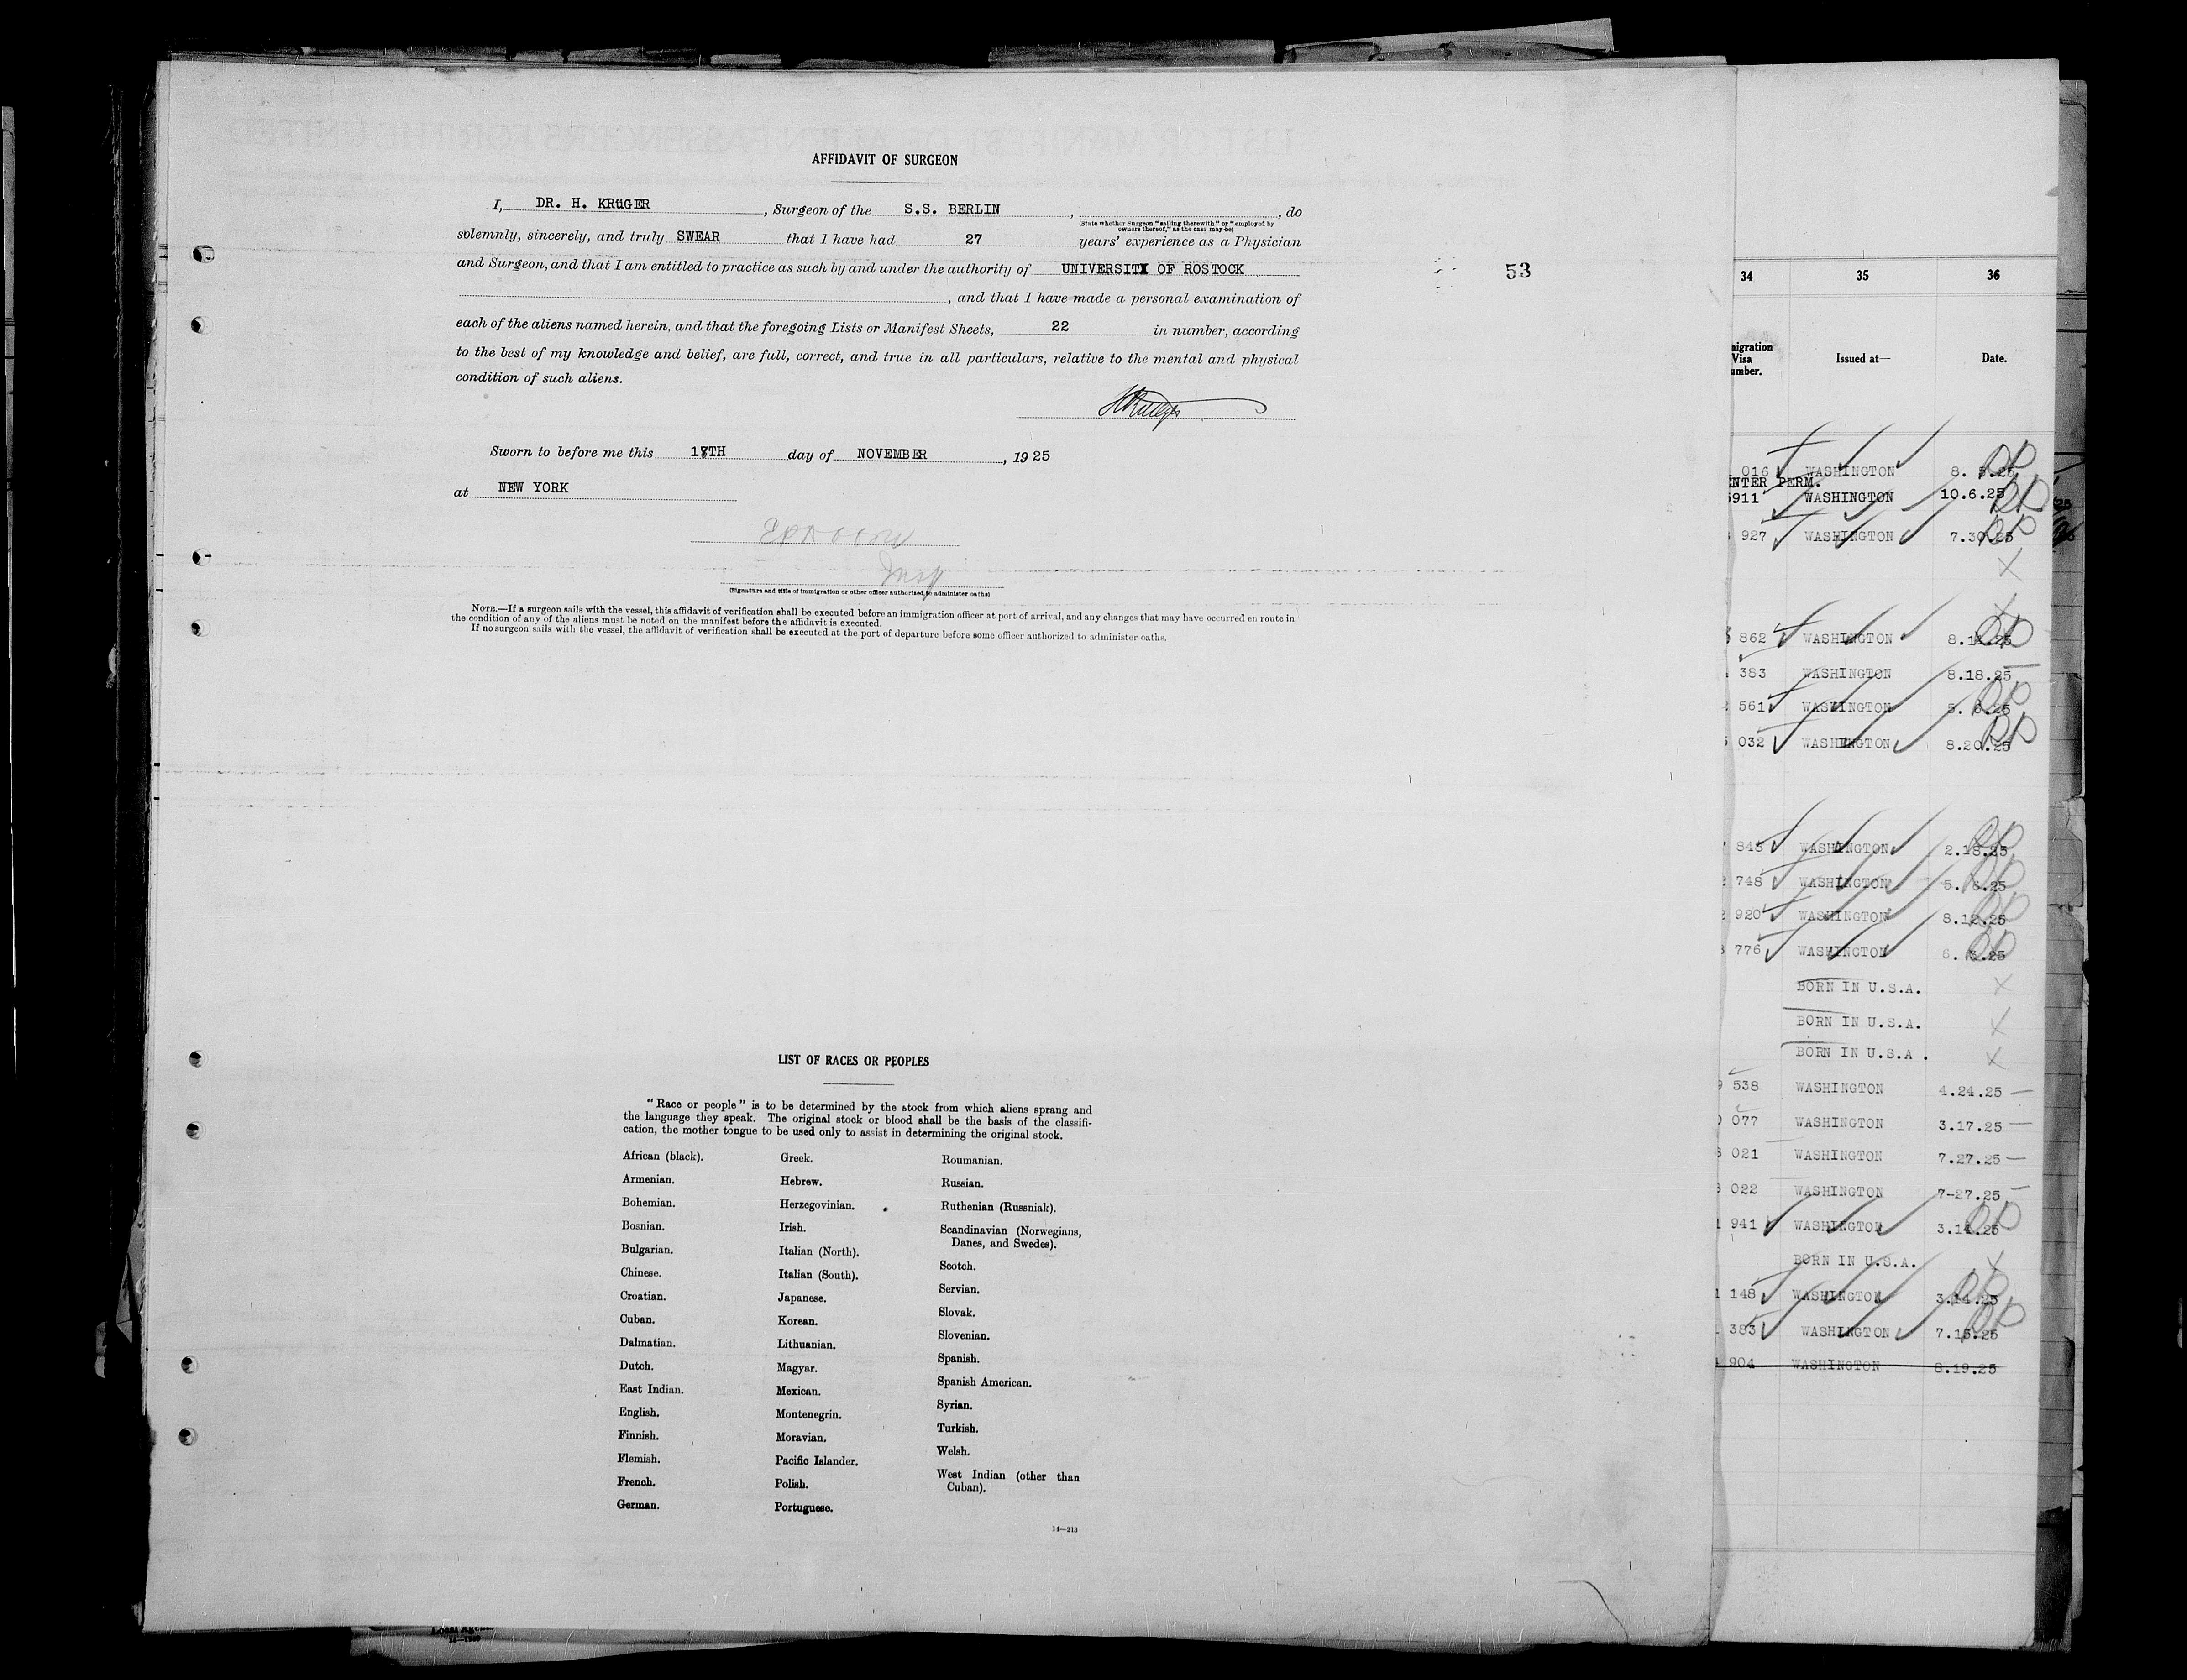 AFFIDAVIT OF SURGEON
I, DR. H. KRüGER, Surgeon of the S.S. BERLIN, , do
(State whether Surgeon "sailing therewith" or "employed by
owners thereof," as the case may be)
solemnly, sincerely, and truly SWEAR that I have had 27 years' experience as a Physician
and Surgeon, and that I am entitled to practice as such by and under the authority of UNIVERSITY OF ROSTOCK
, and that I have made a personal examination of
each of the aliens named herein, and that the foregoing Lists or Manifest Sheets, 22 in number, according
to the best of my knowledge and belief, are full, correct, and true in all particulars, relative to the mental and physical
condition of such aliens.
53
Sworn to before me this TH day of NOVEMBER, 1925
at NEW YORK
Insp
(Signature and title of immigration or other officer authorized to administer oaths)
NOTE.—If a surgeon sails with the vessel, this affidavit of verification shall be executed before an immigration officer at port of arrival, and any changes that may have occurred en route in
the condition of any of the aliens must be noted on the manifest before the affidavit is executed.
If no surgeon sails with the vessel, the affidavit of verification shall be executed at the port of departure before some officer authorized to administer oaths.
LIST OF RACES OR PEOPLES
"Race or people" is to be determined by the stock from which aliens sprang and
the language they speak. The original stock or blood shall be the basis of the classifi-
cation, the mother tongue to be used only to assist in determining the original stock.
African (black).
Armenian.
Bohemian.
Bosnian.
Bulgarian.
Chinese.
Croatian.
Cuban.
Dalmatian.
Dutch.
East Indian.
English.
Finnish.
Flemish.
French.
German.
Greek.
Hebrew.
Herzegovinian.
Irish.
Italian (North).
Italian (South).
Japanese.
Korean.
Lithuanian.
Magyar.
Mexican.
Montenegrin.
Moravian.
Pacific Islander.
Polish.
Portuguese.
Roumanian.
Russian.
Ruthenian (Russniak).
Scandinavian (Norwegians,
Danes, and Swedes).
Scotch.
Servian.
Slovak.
Slovenian.
Spanish.
Spanish American.
Syrian.
Turkish.
Welsh.
West Indian (other than
Cuban).
14—213
34 35 36
igration
Visa
mber.
Issued at—
Date.
016 WASHINGTON
ENTER PERM.
5911 WASHINGTON 10.6.25
927 WASHINGTON 7.30.25
862 WASHINGTON
383 WASHINGTON 8.18.25
561 WASHINGTON
032 WASHINGTON 8.20.25
WASHINGTON 2.18.25
748 WASHINGTON
920 WASHINGTON 8.12.25
776 WASHINGTON
BORN IN U.S.A.
BORN IN U.S.A.
BORN IN U.S.A.
538 WASHINGTON 4.24.25 —
077 WASHINGTON 3.17.25 —
021 WASHINGTON 7.27.25 —
022 WASHINGTON 7-27.25 —
941 WASHINGTON 3.14.25
BORN IN U.S.A.
148 WASHINGTON 3.14.25
383 WASHINGTON 7.15.25
904 WASHINGTON 8.19.25